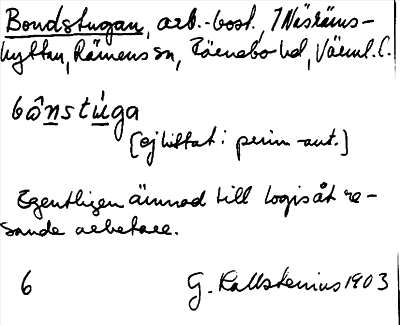 Bondstugan, arb.-bost., i Näsräms-
hyttan, Rämens sn, Färnebo hd, Värml. l.
bônstùga
[ej hittat i perm-ant.]
Egentligen ämnad till logis åt re-
sande arbetare.
6 G. Kallstenius 1903